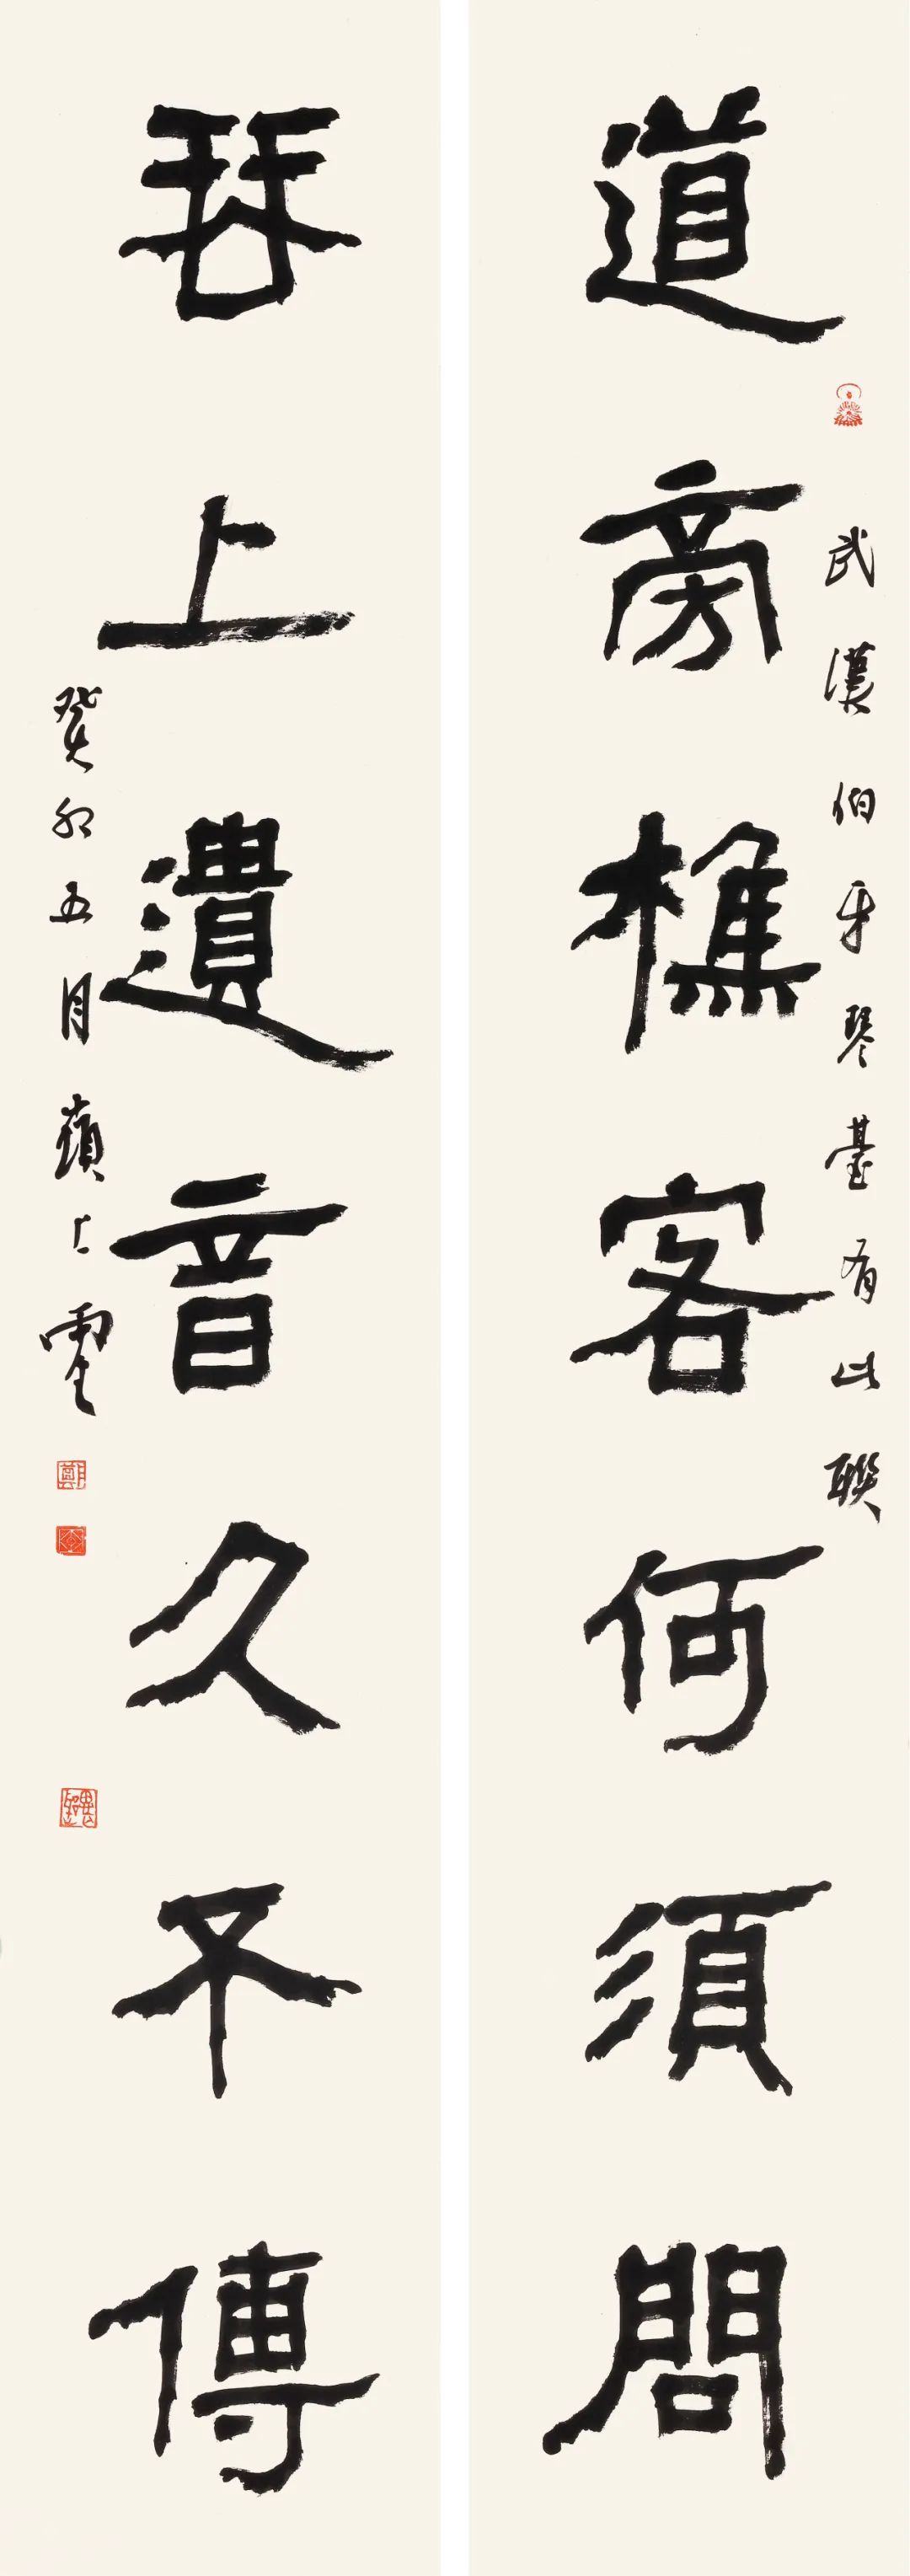 道旁樵客何須問
武漢伯牙琴臺有此聯
琴上遺音久不傳
癸卯五月嶺上雲